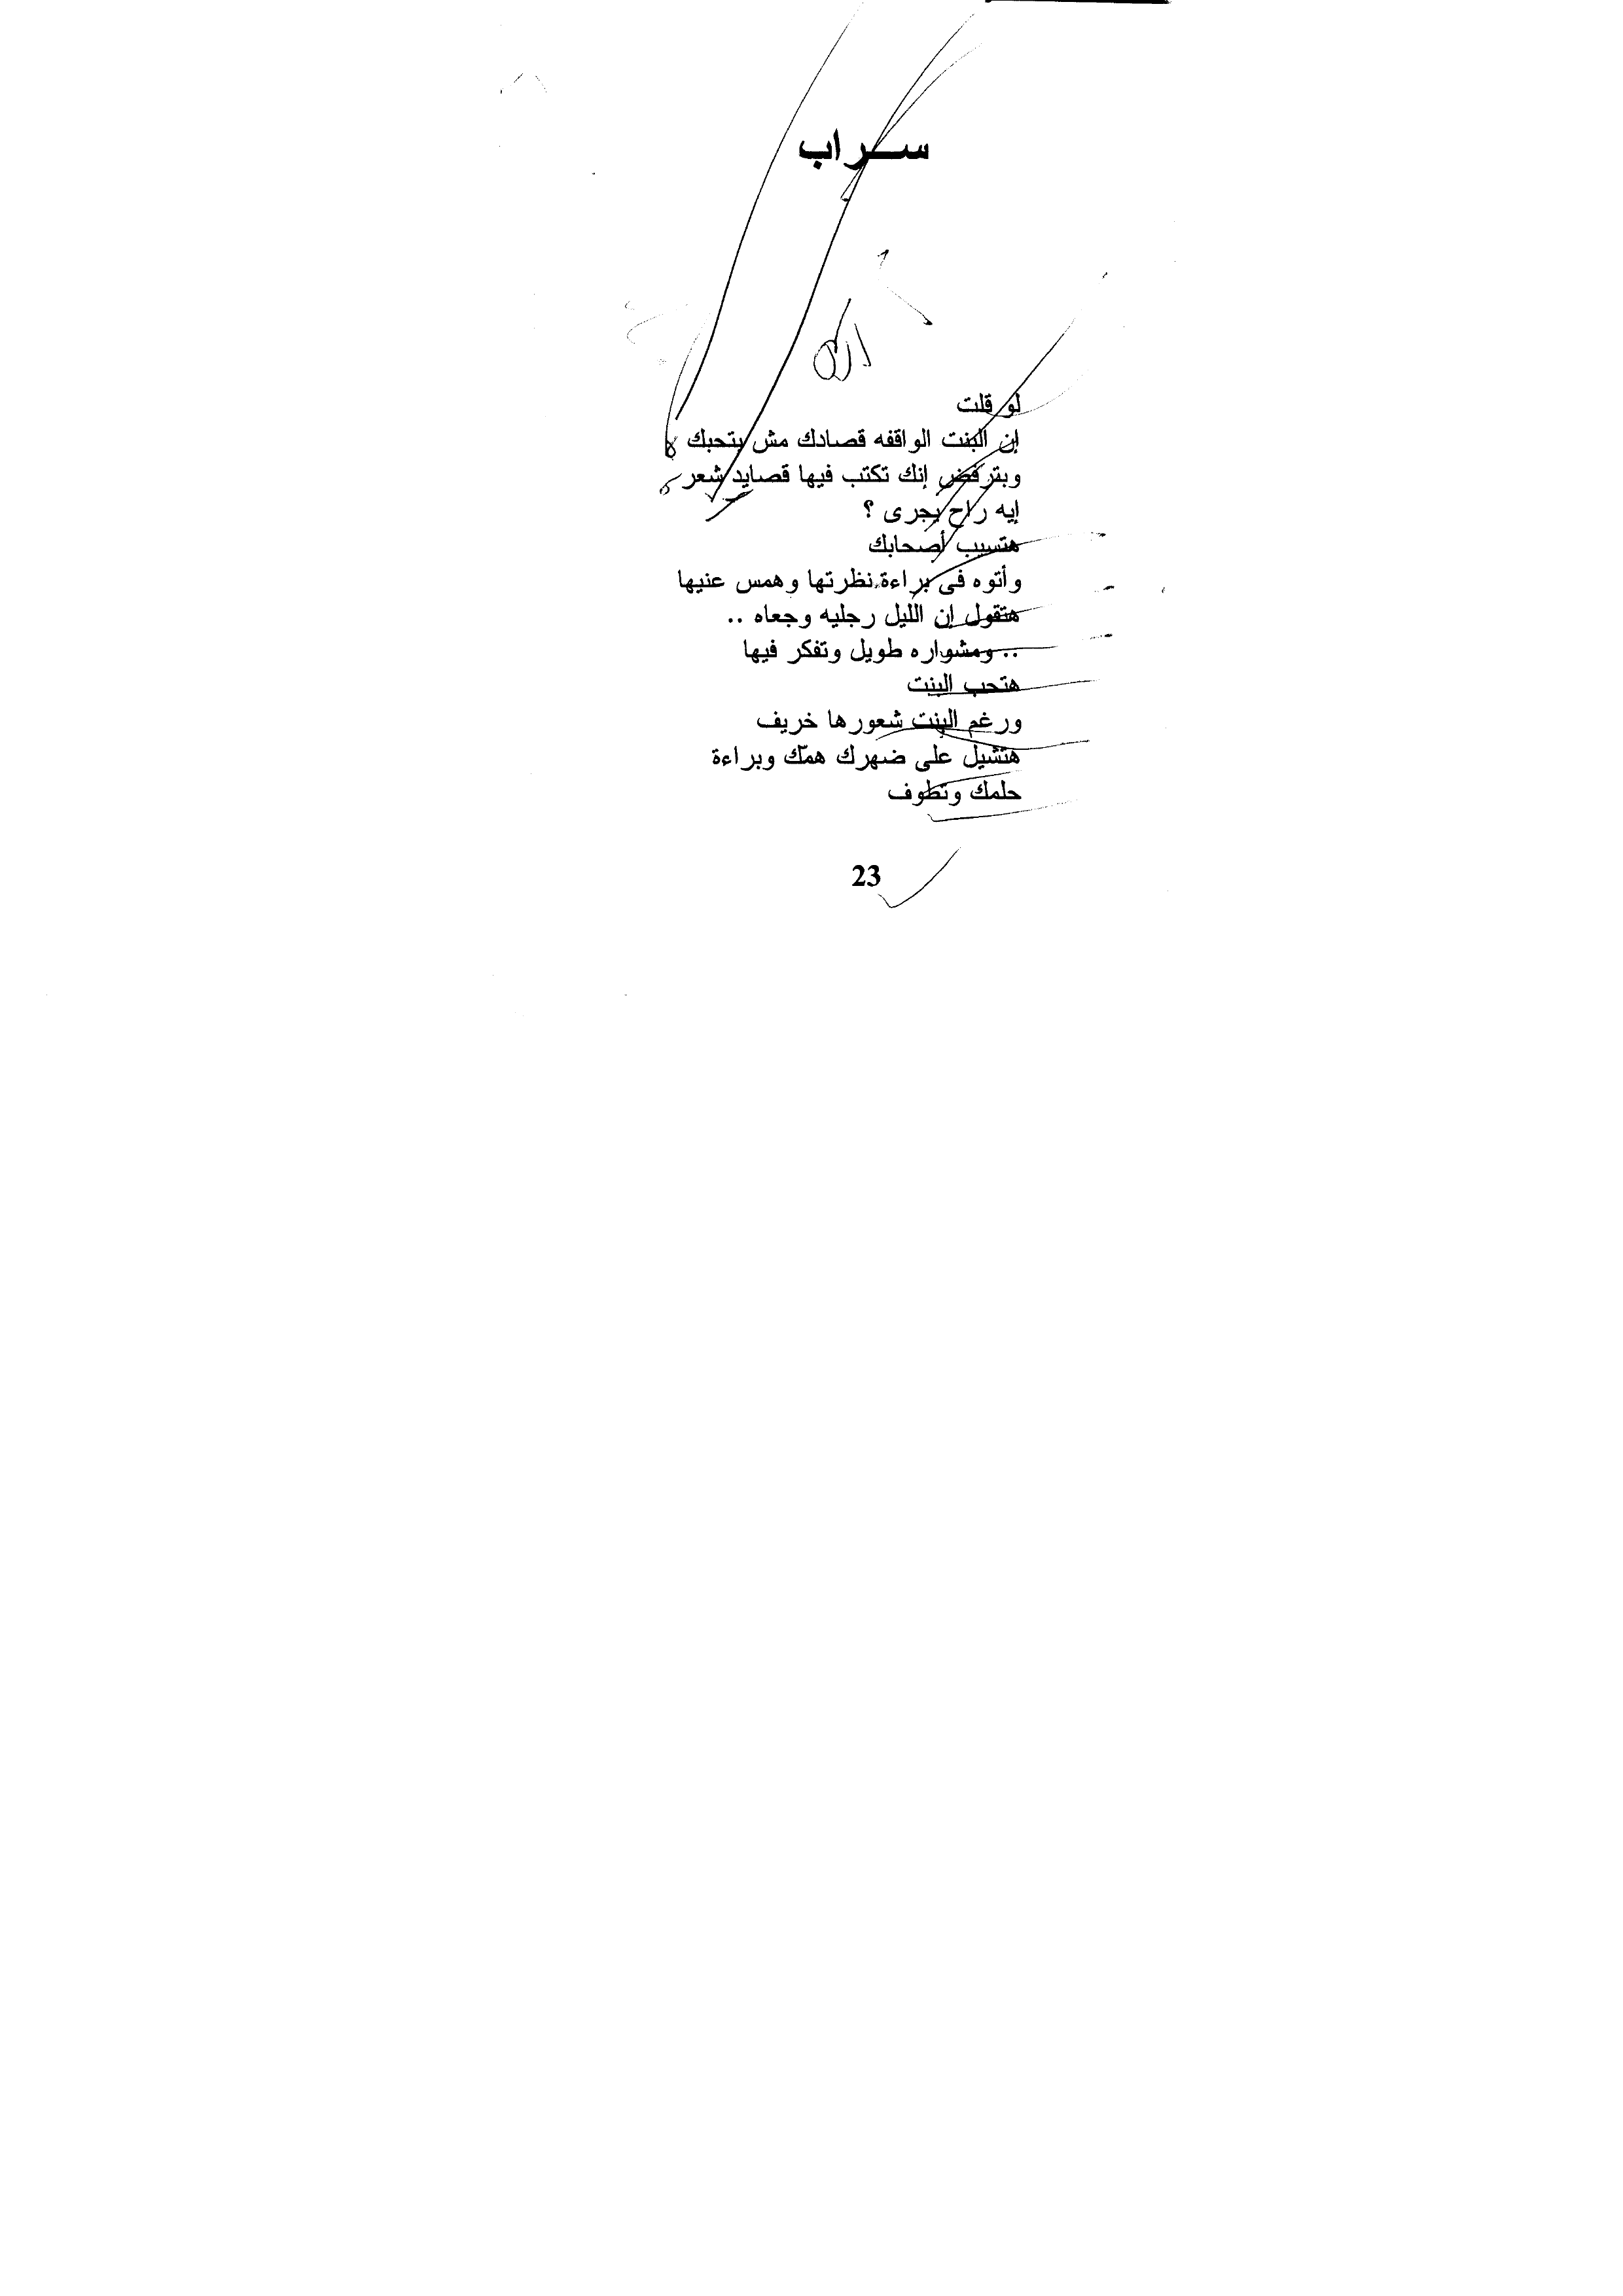 ســراب
لو قلت
إن البنت الواقفه قصادك مش بتحبك
وبترفض إنك تكتب فيها قصايد شعر
إيه راح يجرى ؟
هتسيب أصحابك
وأتوه فى براءة نظرتها وهمس عنيها
هتقول إن الليل رجليه وجعاه ..
.. ومشواره طويل وتفكر فيها
هتحب البنت
ورغم البنت شعورها خريف
هتشيل على ضهرك همّك وبراءة
حلمك وتطوف
23